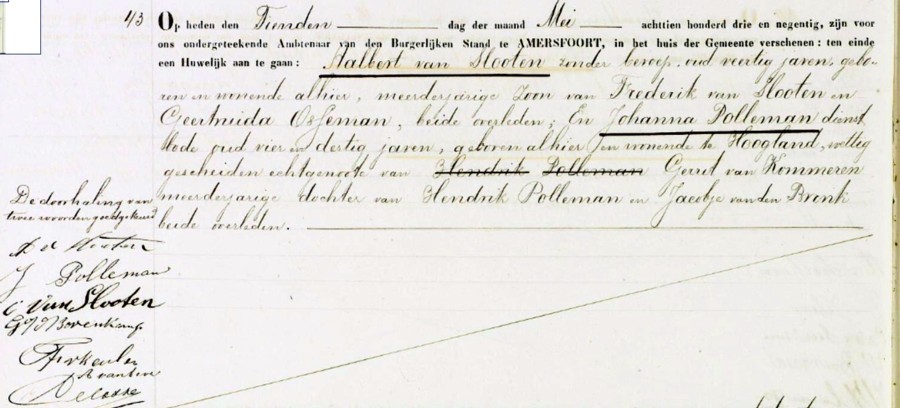 43
Op heden den Tienden dag der maand Mei achttien honderd drie en negentig, zijn voor
ons ondergeteekende Ambtenaar van den Burgerlijken Stand te AMERSFOORT, in het huis der Gemeente verschenen: ten einde
een Huwelijk aan te gaan: Aalbert van Slooten zonder beroep oud veertig jaren, gebo-
ren en wonende alhier, meerderjarige zoon van Frederik van Slooten en
Geertruida Osseman, beide overleden; En Johanna Polleman dienst
bode oud vier en dertig jaren, geboren alhier en wonende te Hoogland, wettig
gescheiden echtgenoote van Hendrik Polleman Gerrit van Kommeren
meerderjarige dochter van Hendrik Polleman en Jacobje van den Brink
beide overleden.
De doorhaling van
twee woorden goedgekeurd
Slooten
J Polleman
van Slooten
Bovenkamp